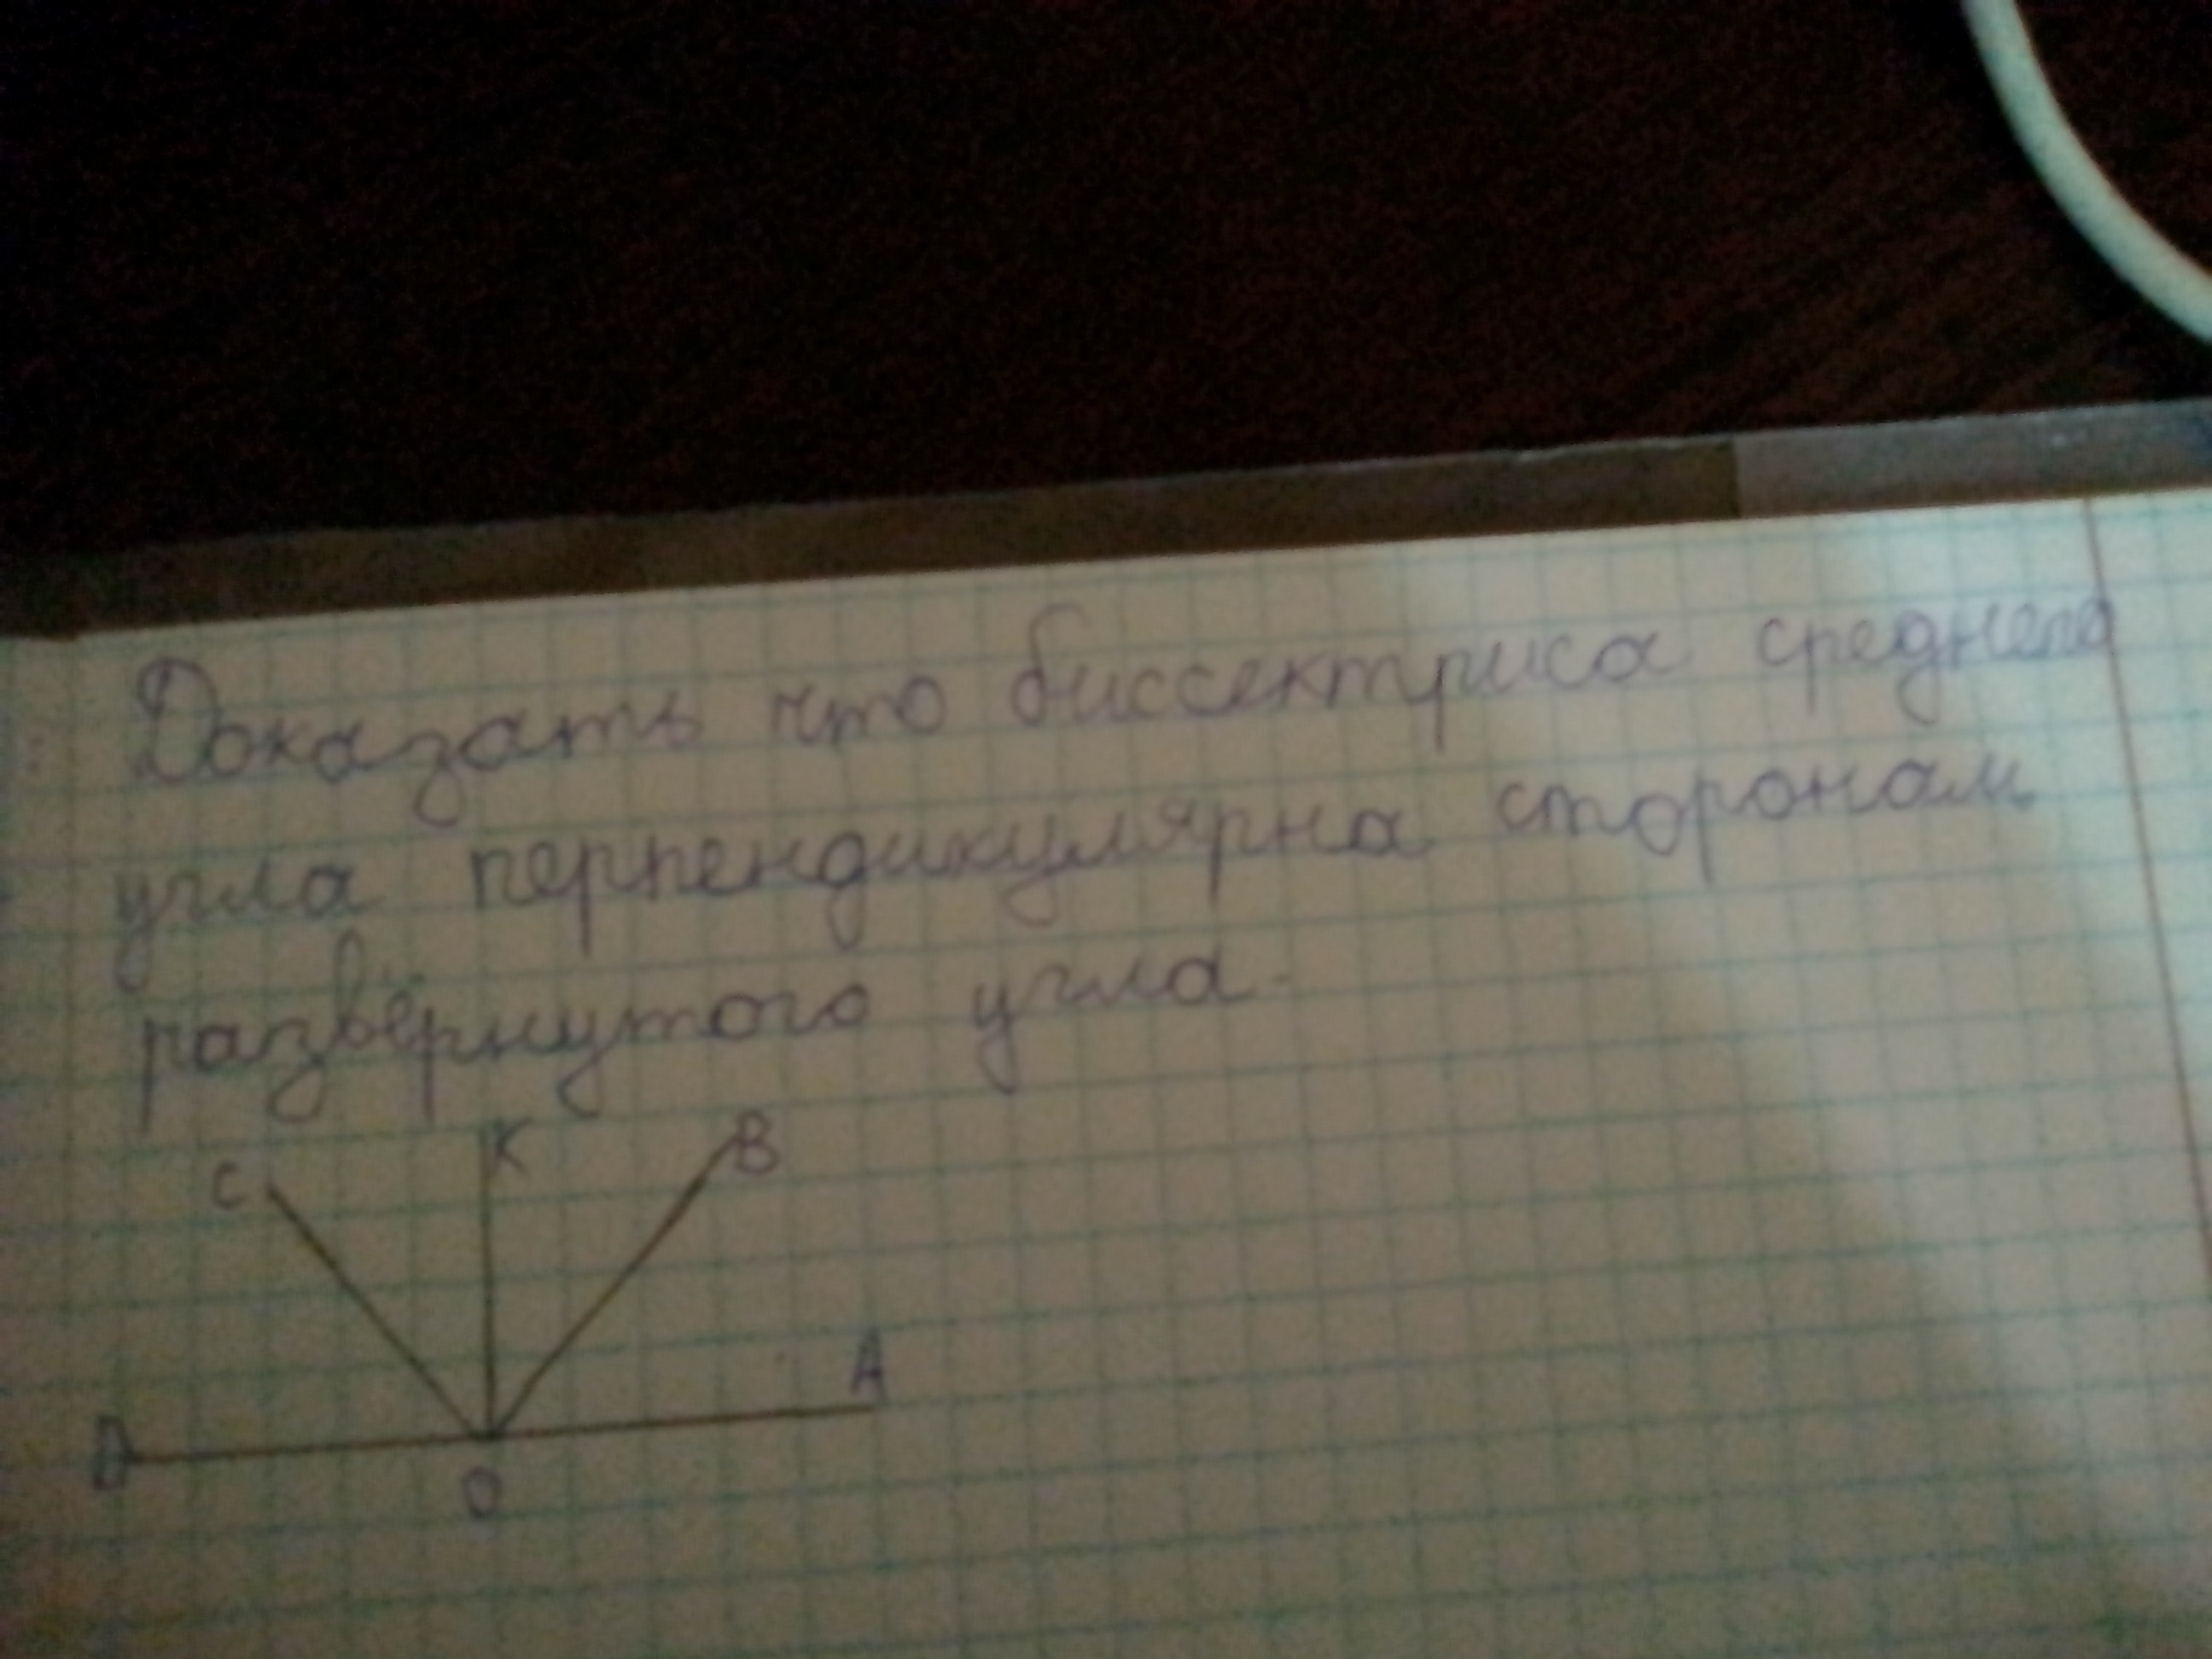 Доказать что биссектриса среднего
угла перпендикулярна сторонам
развёрнутого угла.
C K B
D O A